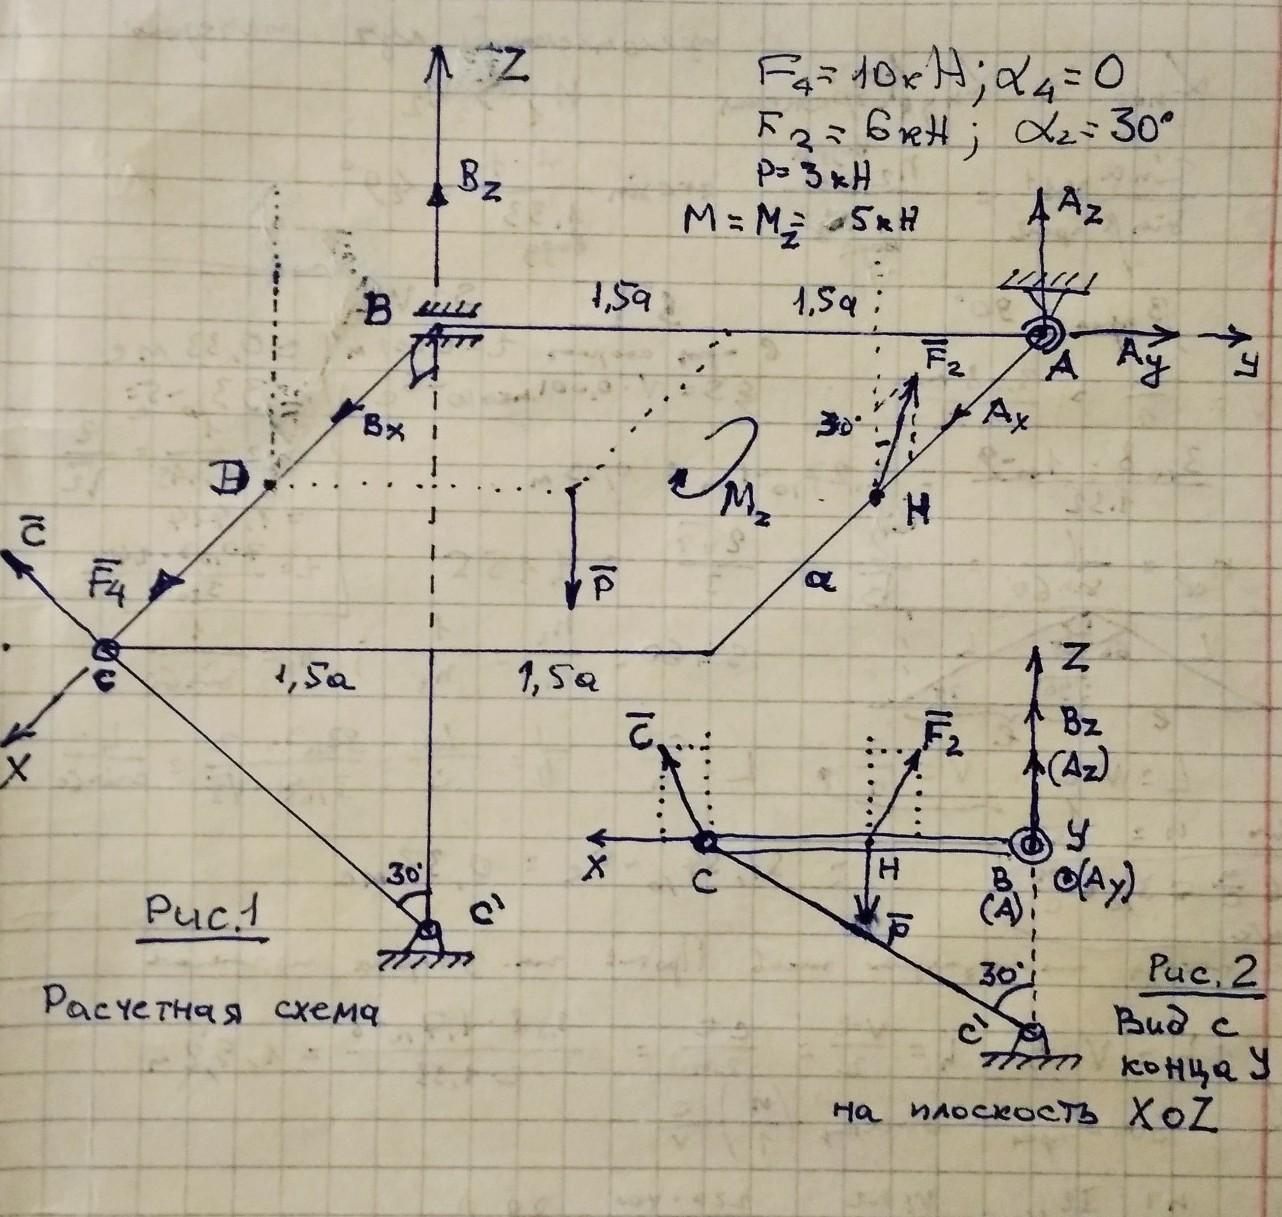 F₄ = 10 кН; α₄ = 0
F₂ = 6 кН; α₂ = 30°
P = 3 кН
M = M_z = 5 кН
Z
B_z
A_z
B
1,5a
1,5a
F̅₂
A
A_y
y
B_x
30°
A_x
D
M_z
H
C̅
F̅₄
P̅
a
C
1,5a
1,5a
X
Z
C̅
F̅₂
B_z
(A_z)
X
C
H
y
B
(A)
(A_y)
P̅
30°
C'
30°
C'
Рис. 1
Расчетная схема
Рис. 2
Вид с
конца y
на плоскость XoZ